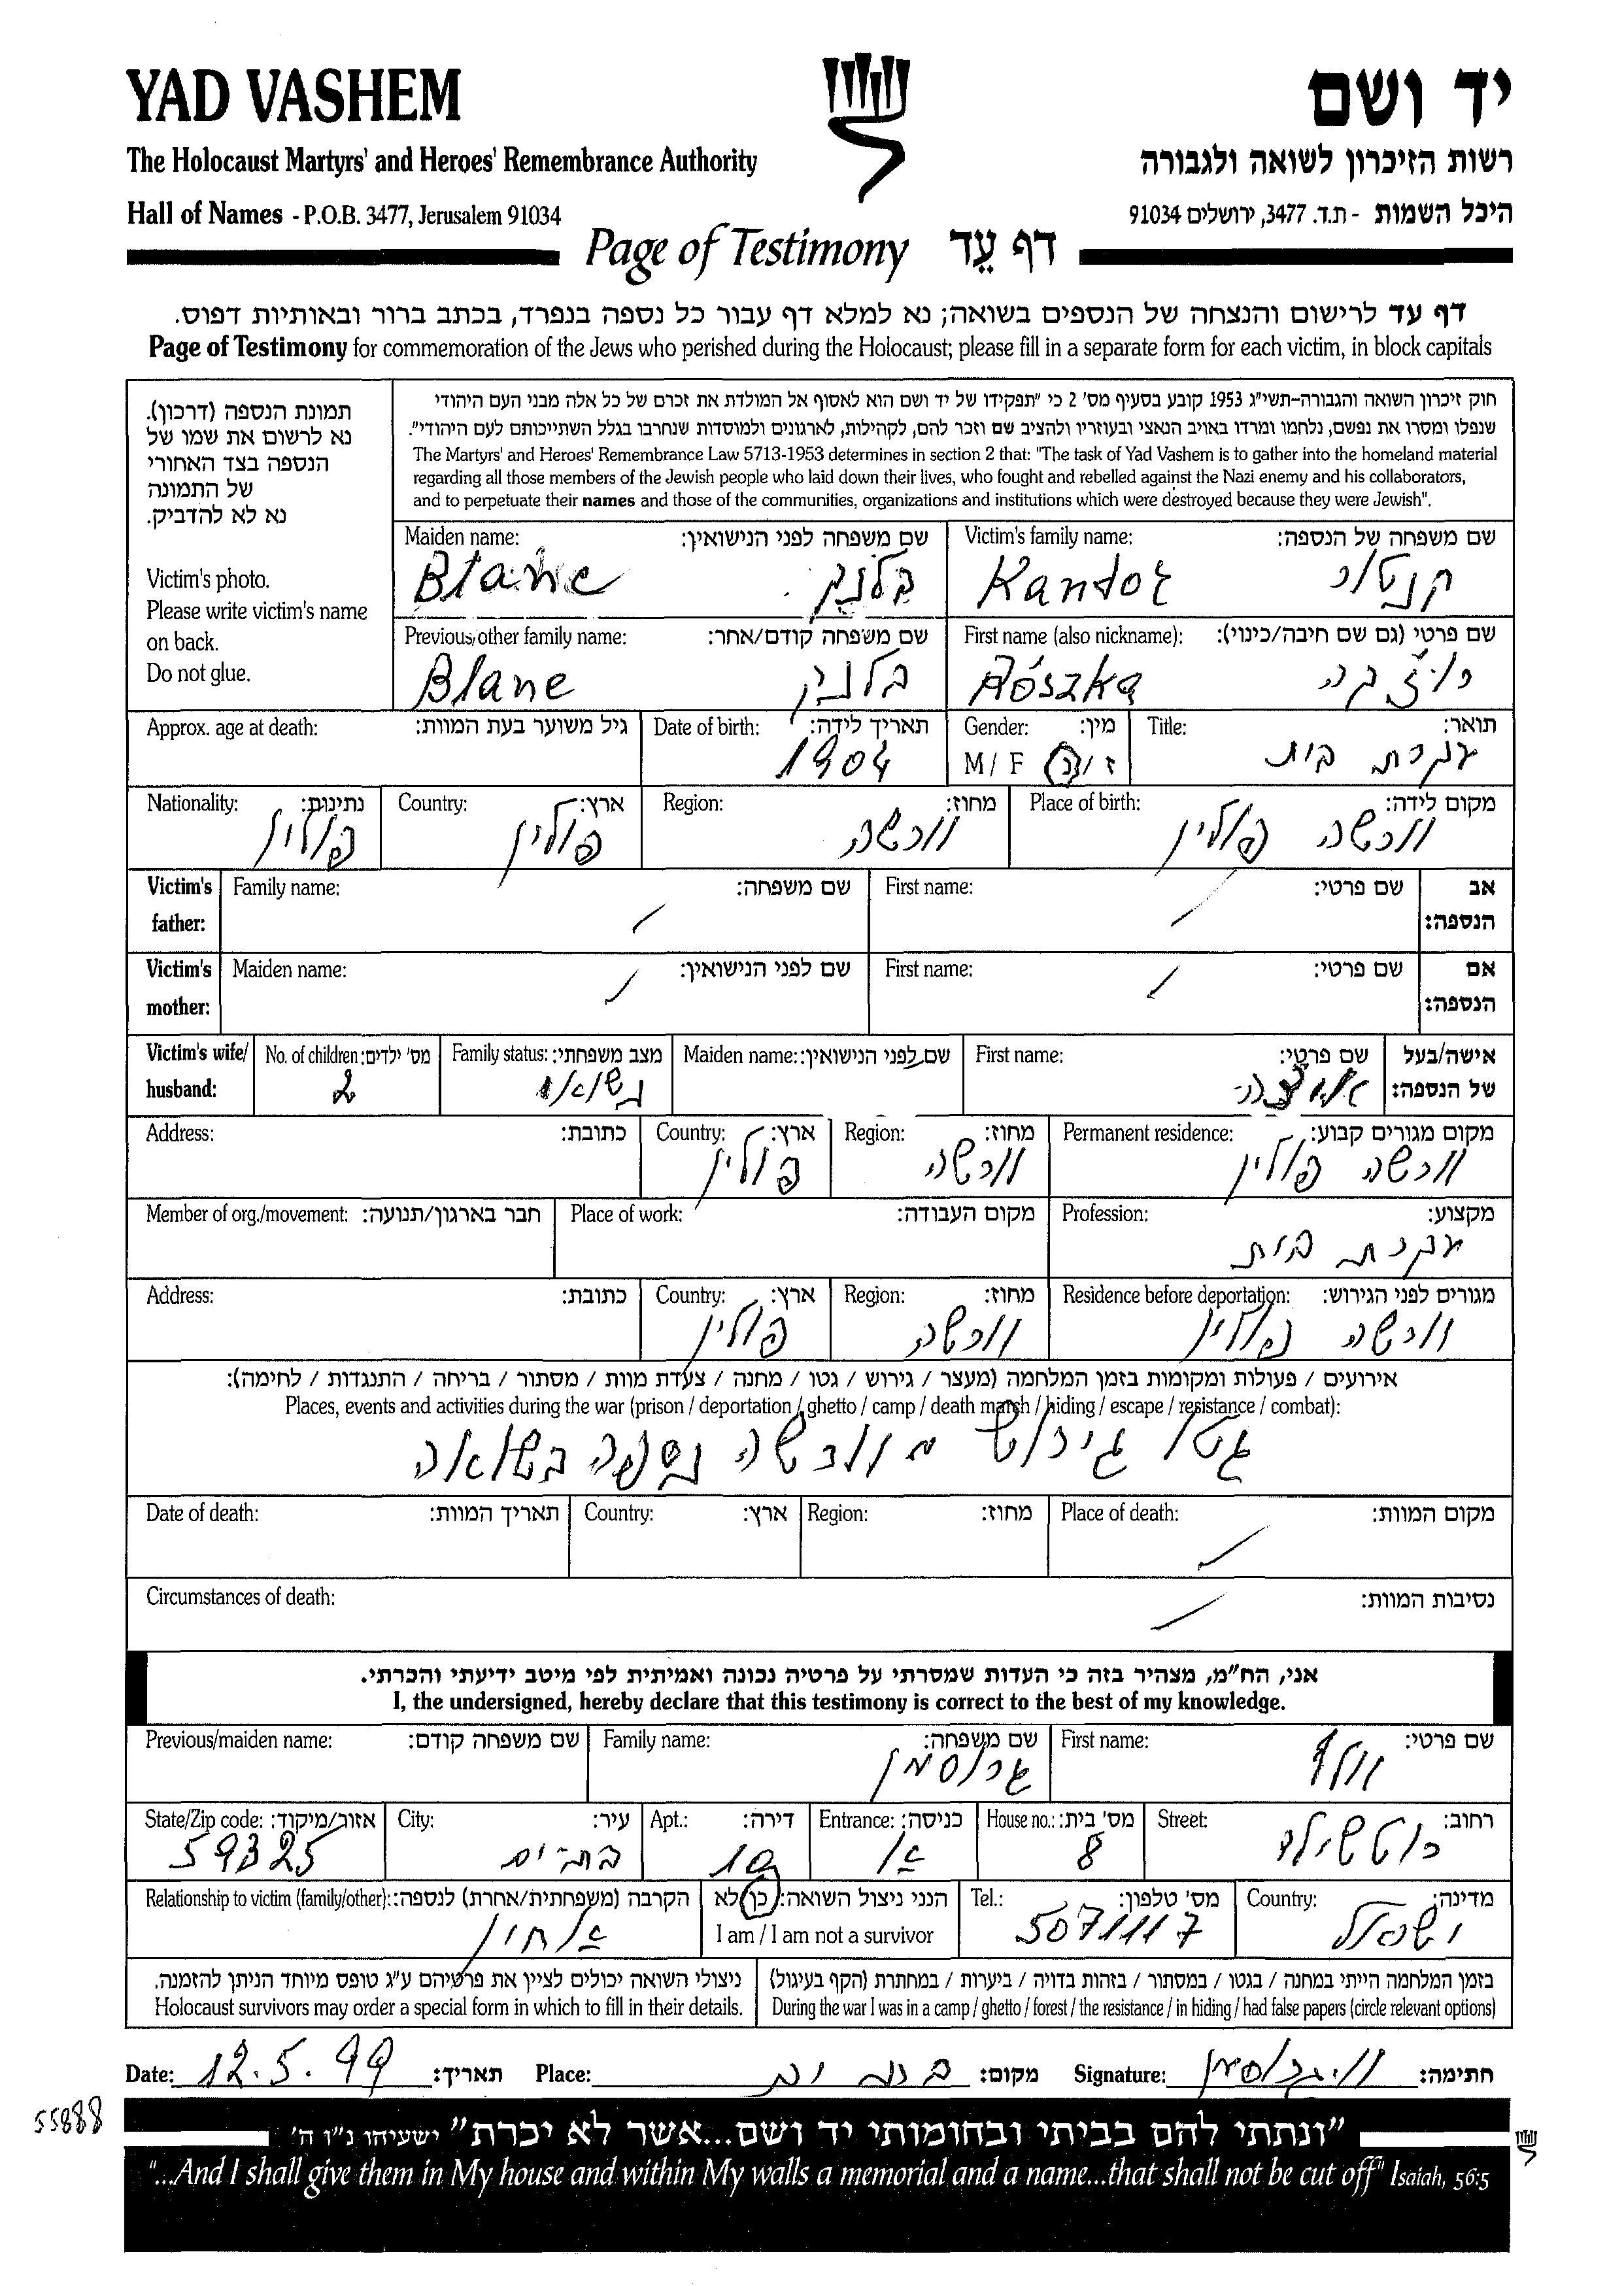 YAD VASHEM
יד ושם
The Holocaust Martyrs' and Heroes' Remembrance Authority
רשות הזיכרון לשואה ולגבורה
Hall of Names - P.O.B. 3477, Jerusalem 91034
היכל השמות - ת.ד. 3477, ירושלים 91034
Page of Testimony דף עֵד
דף עד לרישום והנצחה של הנספים בשואה; נא למלא דף עבור כל נספה בנפרד, בכתב ברור ובאותיות דפוס.
Page of Testimony for commemoration of the Jews who perished during the Holocaust; please fill in a separate form for each victim, in block capitals
תמונת הנספה (דרכון).
נא לרשום את שמו של
הנספה בצד האחורי
של התמונה
נא לא להדביק.
Victim's photo.
Please write victim's name
on back.
Do not glue.
חוק זיכרון השואה והגבורה-תשי"ג 1953 קובע בסעיף מס' 2 כי "תפקידו של יד ושם הוא לאסוף אל המולדת את זכרם של כל אלה מבני העם היהודי
שנפלו ומסרו את נפשם, נלחמו ומרדו באויב הנאצי ובעוזריו ולהציב שם וזכר להם, לקהילות, לארגונים ולמוסדות שנחרבו בגלל השתייכותם לעם היהודי".
The Martyrs' and Heroes' Remembrance Law 5713-1953 determines in section 2 that: "The task of Yad Vashem is to gather into the homeland material
regarding all those members of the Jewish people who laid down their lives, who fought and rebelled against the Nazi enemy and his collaborators,
and to perpetuate their names and those of the communities, organizations and institutions which were destroyed because they were Jewish".
Victim's family name: שם משפחה של הנספה:
Kandor קנטור
Maiden name: שם משפחה לפני הנישואין:
בלנק
First name (also nickname): שם פרטי (גם שם חיבה/כינוי):
Rószka
Previous/other family name: שם משפחה קודם/אחר:
Blane בלנק
Title: תואר:
עקרת בית
Gender: מין:
M / F ז / נ
Date of birth: תאריך לידה:
1904
Approx. age at death: גיל משוער בעת המוות:
Place of birth: מקום לידה:
וורשה פולין
Region: מחוז:
וורשה
Country: ארץ:
פולין
Nationality: נתינות:
פולין
Victim's father: אב הנספה:
First name: שם פרטי:
Family name: שם משפחה:
Victim's mother: אם הנספה:
First name: שם פרטי:
Maiden name: שם לפני הנישואין:
Victim's wife/ husband: אישה/בעל של הנספה:
First name: שם פרטי:
Maiden name: שם לפני הנישואין:
Family status: מצב משפחתי:
נשואו
No. of children: מס' ילדים:
2
Permanent residence: מקום מגורים קבוע:
וורשה פולין
Region: מחוז:
וורשה
Country: ארץ:
פולין
Address: כתובת:
Profession: מקצוע:
עקרת בית
Place of work: מקום העבודה:
Member of org./movement: חבר בארגון/תנועה:
Residence before deportation: מגורים לפני הגירוש:
וורשה פולין
Region: מחוז:
וורשה
Country: ארץ:
פולין
Address: כתובת:
אירועים / פעולות ומקומות בזמן המלחמה (מעצר / גירוש / גטו / מחנה / צעדת מוות / מסתור / בריחה / התנגדות / לחימה):
Places, events and activities during the war (prison / deportation / ghetto / camp / death march / hiding / escape / resistance / combat):
גטו גירוש מ וורשה נספה בשואה
Place of death: מקום המוות:
Region: מחוז:
Country: ארץ:
Date of death: תאריך המוות:
Circumstances of death: נסיבות המוות:
אני, הח"מ, מצהיר בזה כי העדות שמסרתי על פרטיה נכונה ואמיתית לפי מיטב ידיעתי והכרתי.
I, the undersigned, hereby declare that this testimony is correct to the best of my knowledge.
First name: שם פרטי:
וולף
Family name: שם משפחה:
גרוסמן
Previous/maiden name: שם משפחה קודם:
Street: רחוב:
רוטשילד
House no.: מס' בית:
8
Entrance: כניסה:
א'
Apt.: דירה:
10
City: עיר:
בת-ים
State/Zip code: אזור/מיקוד:
59325
Country: מדינה:
ישראל
Tel.: מס' טלפון:
5071117
הנני ניצול השואה: כן/לא
I am / I am not a survivor
Relationship to victim (family/other): הקרבה (משפחתית/אחרת) לנספה:
אחיין
בזמן המלחמה הייתי במחנה / בגטו / במסתור / בזהות בדויה / ביערות / במחתרת (הקף בעיגול)
During the war I was in a camp / ghetto / forest / the resistance / in hiding / had false papers (circle relevant options)
ניצולי השואה יכולים לציין את פרטיהם ע"ג טופס מיוחד הניתן להזמנה.
Holocaust survivors may order a special form in which to fill in their details.
Date: 12.5.99 תאריך: Place: בת ים מקום: Signature: ו. גרוסמן חתימה:
55888
"ונתתי להם בביתי ובחומותי יד ושם...אשר לא יכרת" ישעיהו נ"ו ה'
"...And I shall give them in My house and within My walls a memorial and a name...that shall not be cut off" Isaiah, 56:5